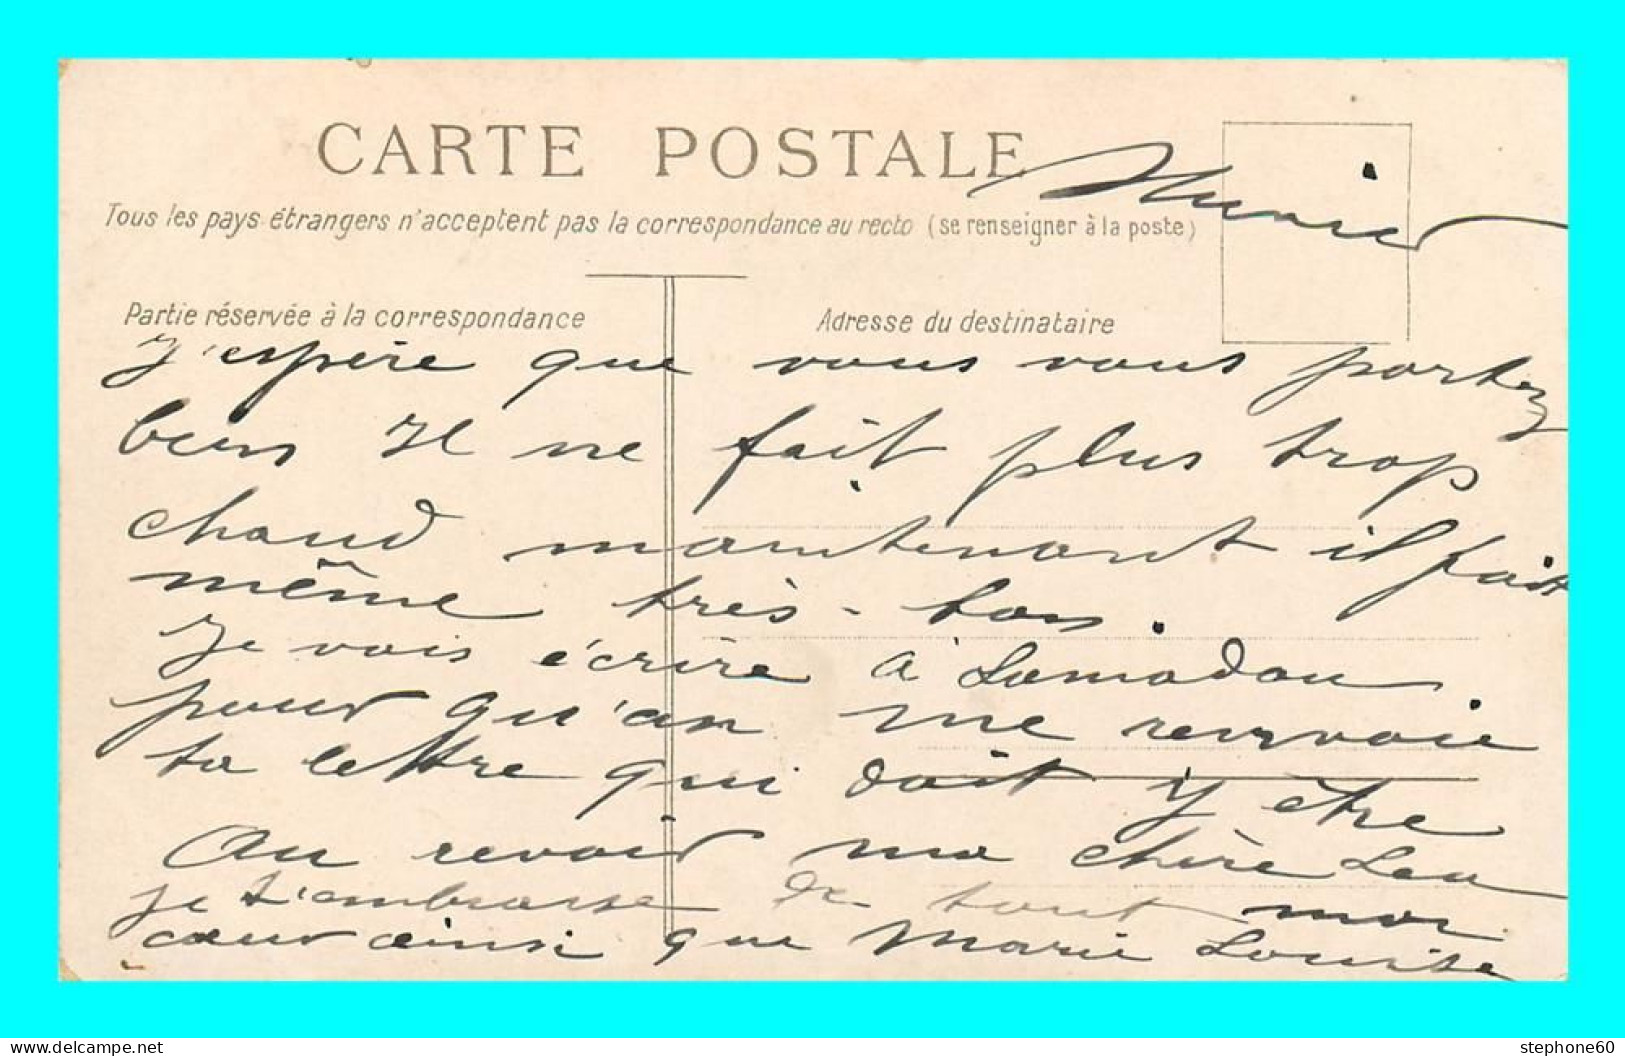 CARTE POSTALE
Tous les pays étrangers n'acceptent pas la correspondance au recto (se renseigner à la poste)
Partie réservée à la correspondance
Adresse du destinataire
J'espère que vous vous portez
bien Il ne fait plus trop
chaud maintenant il fait
même très-bon.
Je vais écrire à Lamadou
pour qu'on me renvoie
ta lettre qui doit y être
Au revoir ma chère Lea
je t'embrasse de tout mon
cœur ainsi que Marie Louise
stephone60